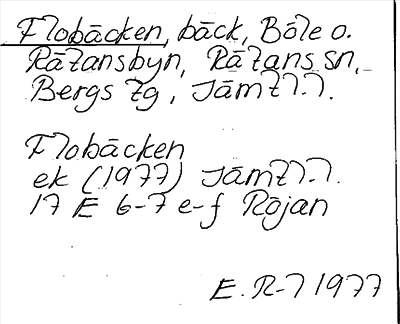 Flobäcken, bäck, Böle o.
Rätansbyn, Rätans sn,
Bergs tg, Jämtl.
Flobäcken
ek (1977) Jämtl.
17 E 6-7 e-f Röjan
E. R-7 1977